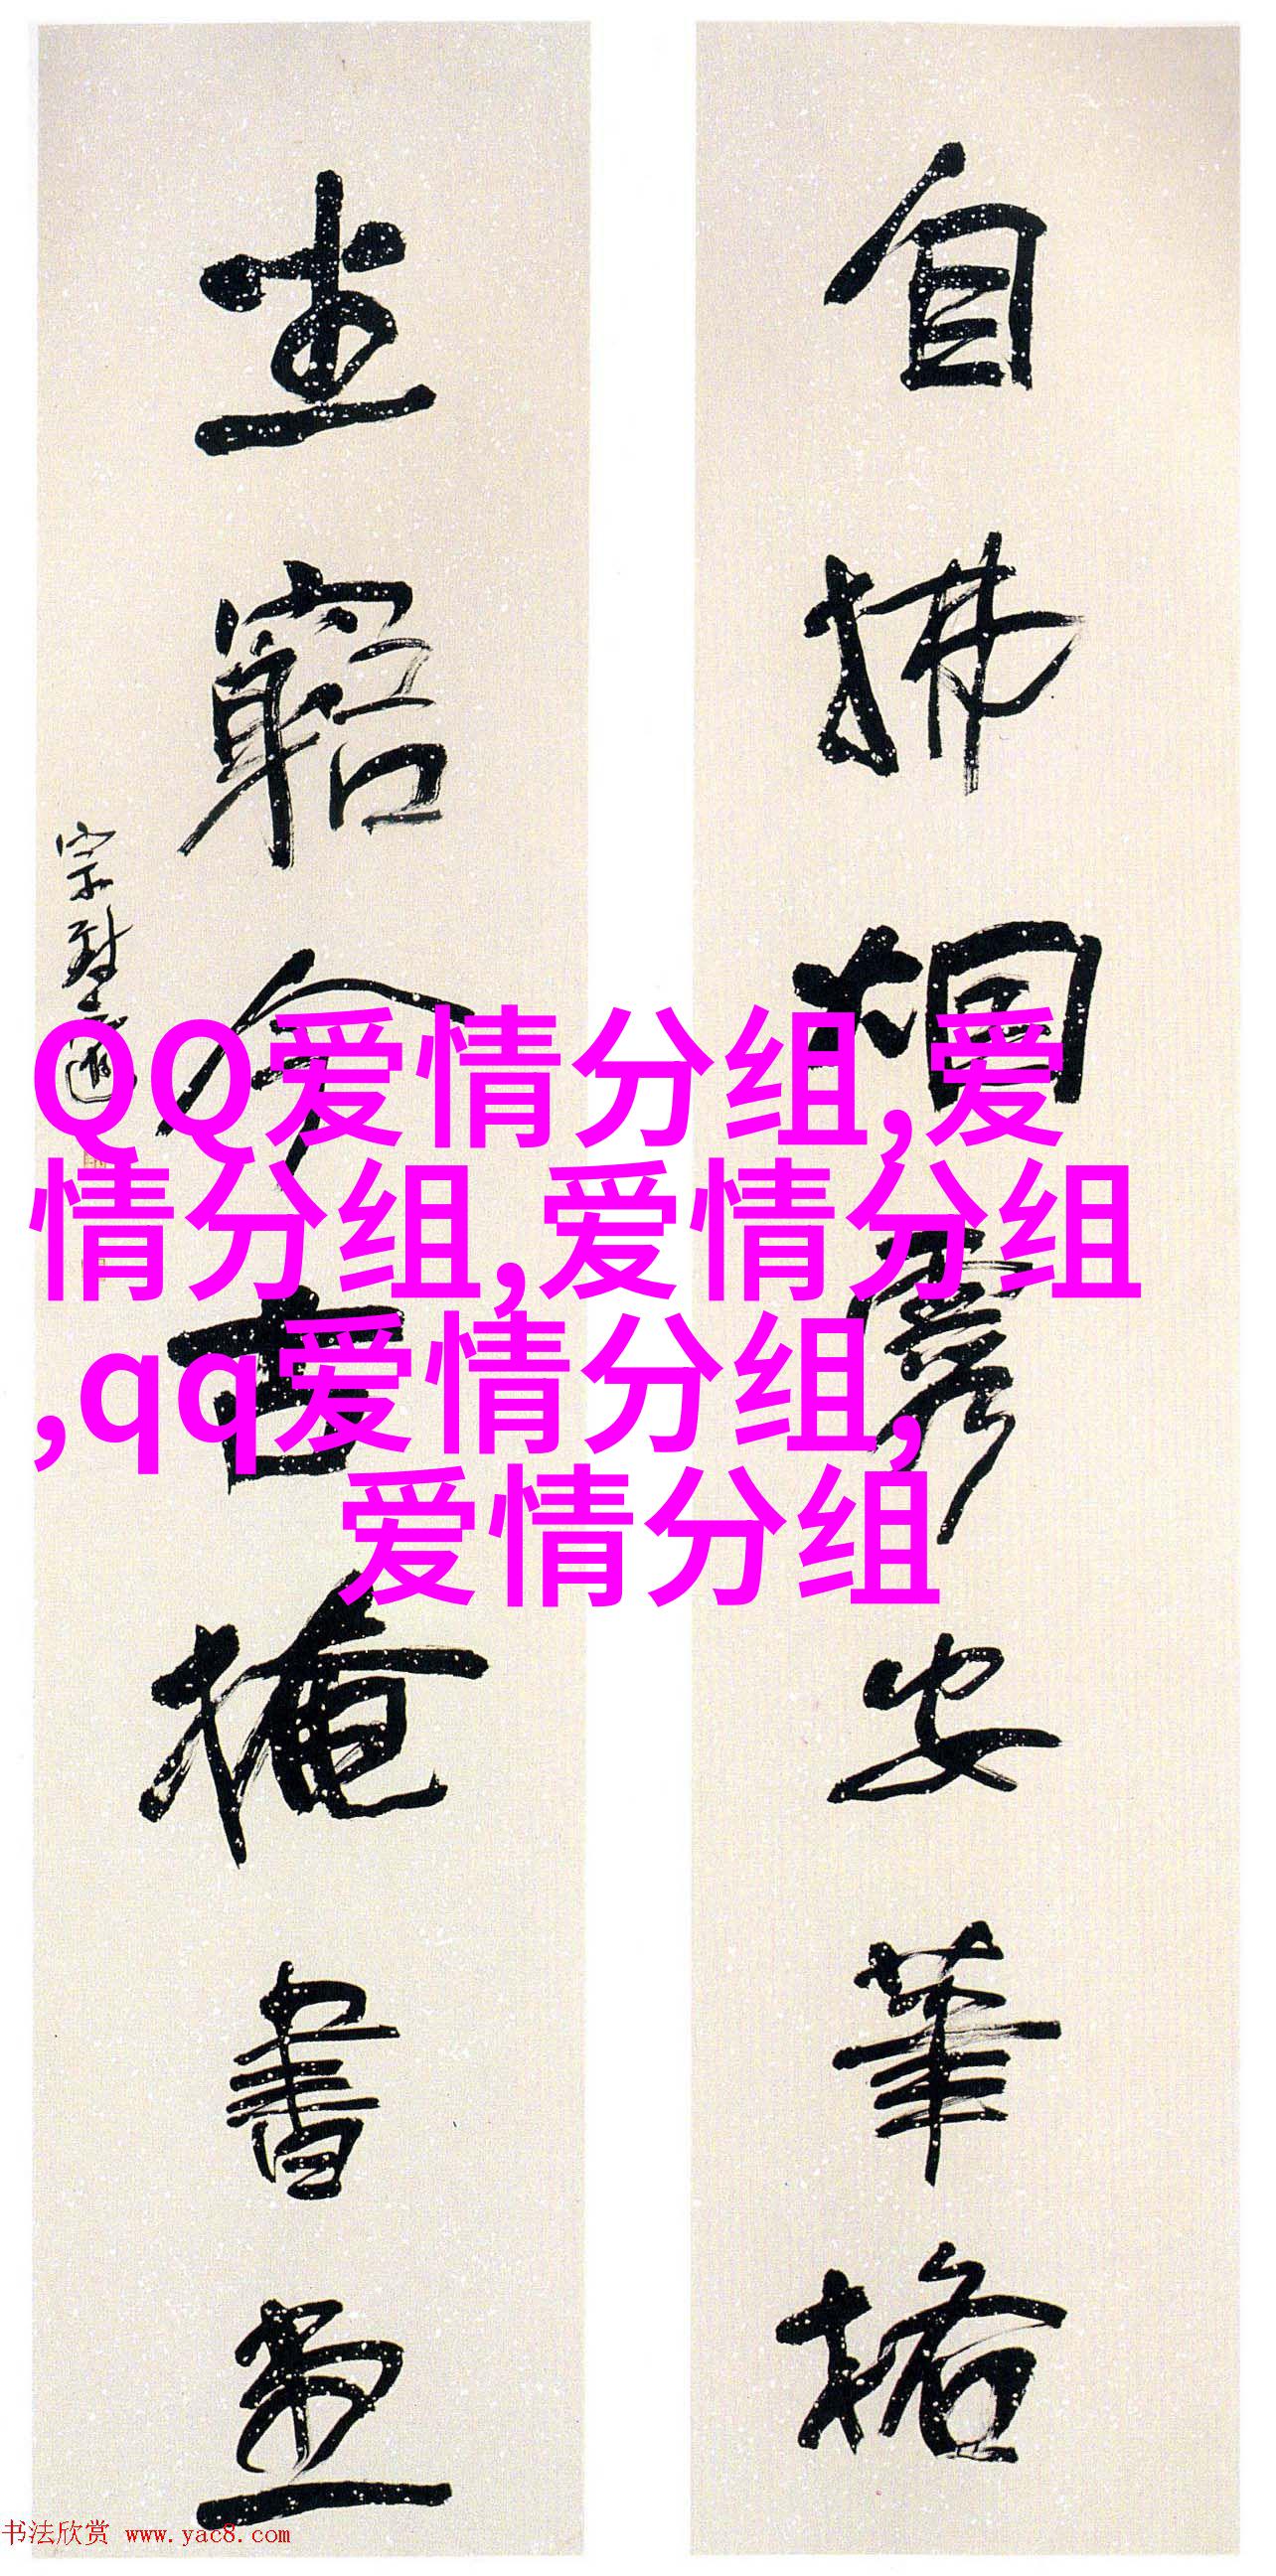 自拂烟霞安筆格
坐窮今古掩書堂
QQ爱情分组,爱
情分组,爱情分组
,qq爱情分组,
爱情分组
书法欣赏 www.yac8.com